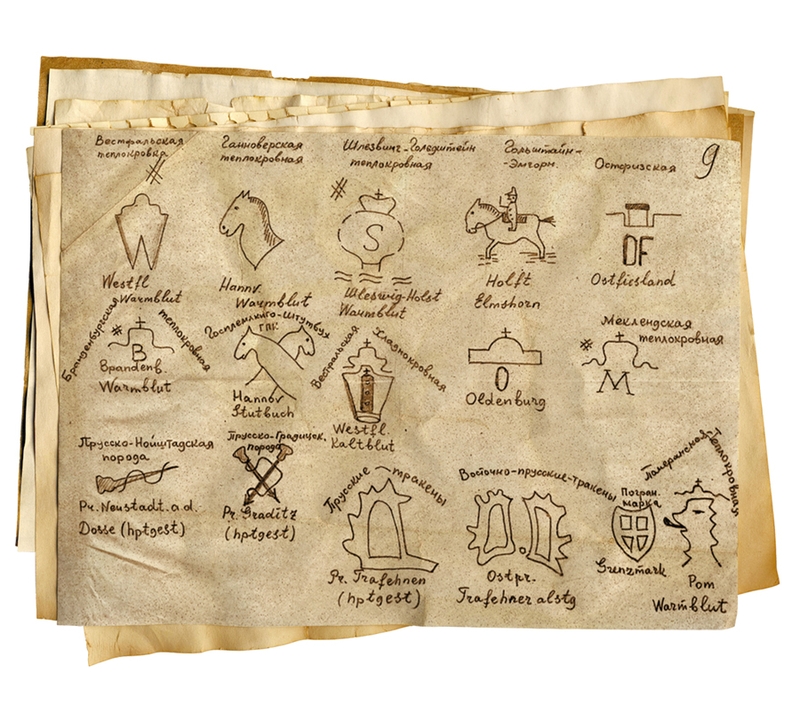 Вестфальская
теплокровка
#
Westfl
Warmblut
Ганноверская
теплокровная
Hannv.
Warmblut
Шлезвинг-Голедштейн
теплокровная
#
S
Warmblut
Гольштайн-
-Элгорн.
Holft
Elmshorn
Остфризская
OF
9
Бранденбургская
теплокровная
#
B
Brandenb.
Warmblut
ГПК:
Hannov
Stutbuch
Вестральский
Хладнокровная
Westfl.
Kaltblut
O
Oldenburg
Меклендская
теплокровная
#
M
Прусско-Нойштадская
порода
Pr. Neustadt. a.d.
Dosse (hptgest)
порода
Pr. Graditz
(hptgest)
Прусские - тракены
Pr. Trafehnen
(hptgest)
Восточно-прусские-тракены
Ostpr.
Trafehner alstg
Погран.
марка
Grenzmark
Теплокровная
Pom
Warmblut